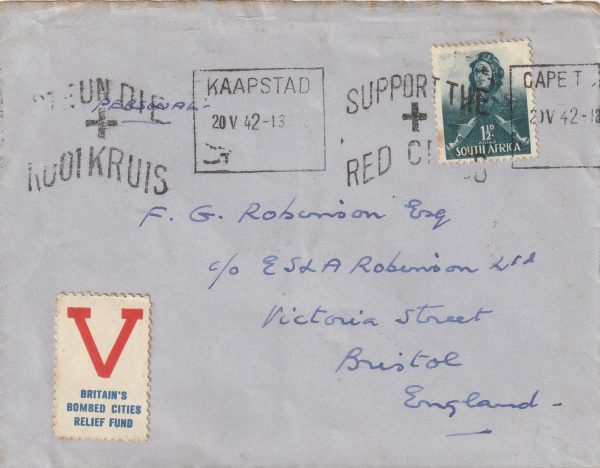 STEUN DIE
ROOIKRUIS
PERSONAL-
KAAPSTAD
20 V 42-13
SUPPORT THE
RED CROSS
CAPE T
20 V 42-13
1½D
SOUTH AFRICA
F. G. Robinson Esq
c/o E S & A Robinson Ltd
Victoria Street
Bristol
England-
V
BRITAIN'S
BOMBED CITIES
RELIEF FUND